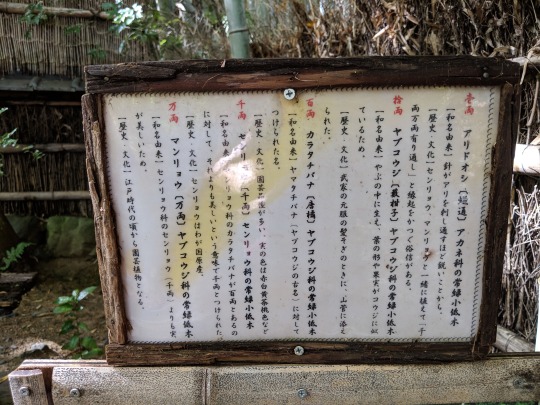 壹両 アリドオシ〔蟻通〕アカネ科の常緑小低木
【和名由来】針がアリを刺し通すほど鋭いことから。
【歴史、文化】センリョウ、マンリョウと一緒に植えて「千
両万両有り通し」と縁起をかつぐ俗信がある。
拾両 ヤブコウジ〔藪柑子〕ヤブコウジ科の常緑小低木
【和名由来】やぶの中に生え、葉の形や果実がコウジに似
ているため。
【歴史、文化】武家の元服の髪そぎのときに、山菅に添え
られた。
百両 カラタチバナ〔唐橘〕ヤブコウジ科の常緑小低木
【和名由来】ヤマタチバナ（ヤブコウジの古名）に対して
つけられた名
【歴史、文化】園芸品種が多い。実の色は赤白黄茶桃色など
千両 センリョウ〔千両〕センリョウ科の常緑小低木
【和名由来】ヤブコウジ科のカラタチバナが百両とあるの
に対して、それよりも美しいという意味で千両とつけられた
【歴史、文化】センリョウはわが国原産。
万両 マンリョウ〔万両〕ヤブコウジ科の常緑小低木
【和名由来】センリョウ科のセンリョウ（千両）よりも実
が美しいため。
【歴史、文化】江戸時代の頃から園芸植物となる。